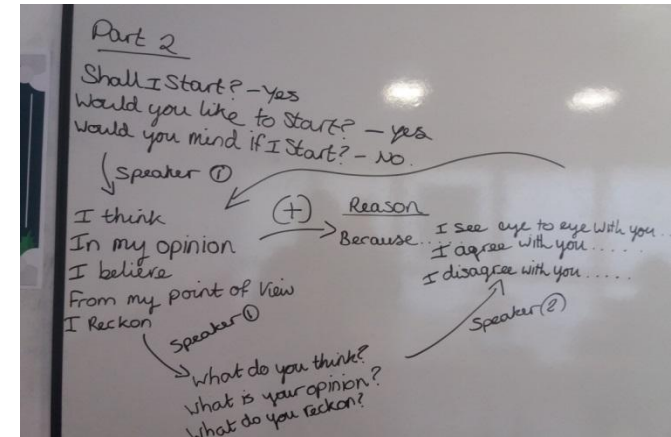 Part 2
Shall I Start? - Yes
Would you like to Start? - yes
Would you mind if I Start? - No.
Speaker ①
I think
In my opinion
I believe
From my point of View
I Reckon
+
Reason
Because...
I see eye to eye with you...
I agree with you.....
I disagree with you.....
Speaker ②
Speaker ①
What do you think?
What is your opinion?
What do you reckon?